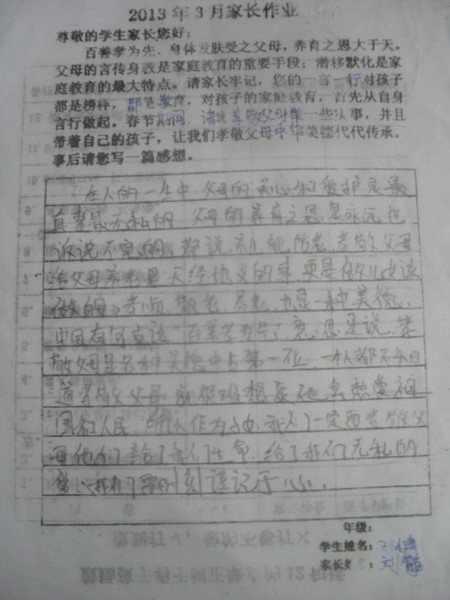 2013年3月家长作业
尊敬的学生家长您好：
百善孝为先，身体发肤受之父母，养育之恩大于天。
父母的言传身教是家庭教育的重要手段；潜移默化是家
庭教育的最大特点。请家长牢记，您的一言一行对孩子
都是榜样，都是教育，对孩子的家庭教育，首先从自身
言行做起。春节期间，请您为父母做一些实事，并且
带着自己的孩子，让我们孝敬父母中华美德代代传承。
事后请您写一篇感想。
在人的一生中，父母的关心和爱护是最
真挚最无私的，父母的养育之恩是永远也
诉说不完的，都说养儿能防老，孝敬父母
给父母养老是天经地义的事，更是做儿女该
做的。孝顺、敬老、养老，也是一种美德，
中国有句古话"百善孝为先"意思是说，孝
敬父母是各种美德中占第一位，一个人都不知
道孝敬父母，就很难想象他会热爱祖
国和人民，所以作为儿女，我们一定要孝敬父
母他们给了我们生命，给了我们无私的
爱，我们要时刻谨记于心。
年级：
学生姓名：
家长姓名：刘